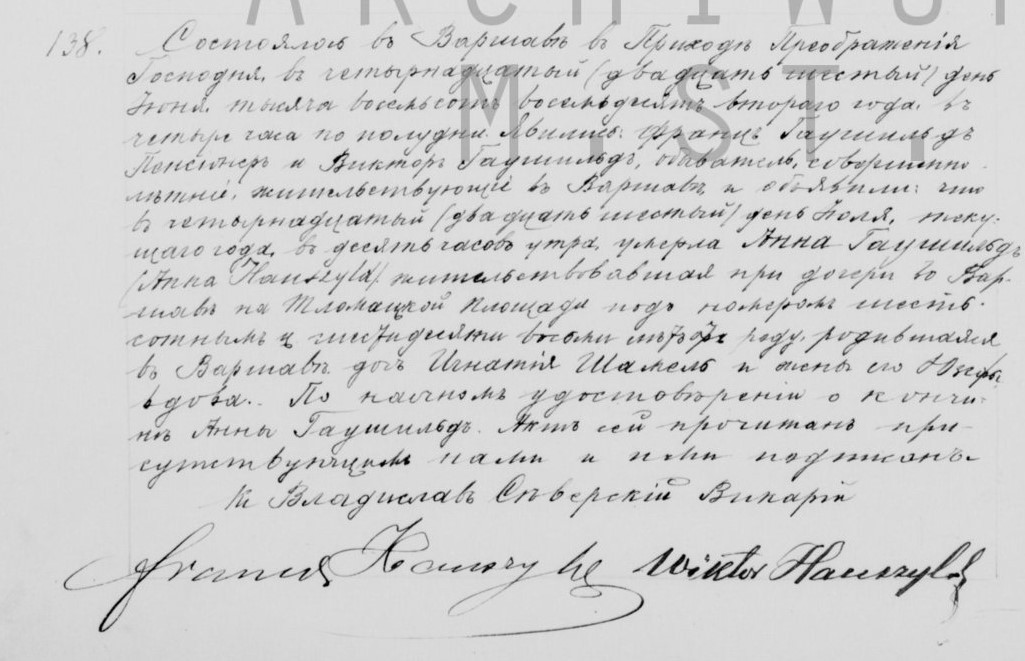 ARCHIWUM
M. ST.
138. Состоялось въ Варшавѣ въ Приходѣ Преображенія
Господня, въ четырнадцатый (двадцать шестый) день
Іюня тысяча восемьсотъ восемьдесятъ втораго года, въ
четыре часа по полудни. Явились: Францъ Гаушильдъ
Пенсіонеръ и Викторъ Гаушильдъ, обыватель, совершенно
лѣтніе, жительствующіе въ Варшавѣ и объявили: что
въ четырнадцатый (двадцать шестый) день Іюля, теку-
щаго года, въ десять часовъ утра, умерла Анна Гаушильдъ
(Anna Hauszyld) жительствовавшая при дочери въ Вар-
шавѣ на Тломацкой площади подъ номеромъ шесть-
сотнымъ, шестидесяти восьми лѣтъ роду, родившаяся
въ Варшавѣ дочь Игнатія Шамель и жены его Юзефы
вдова. По наочномъ удостовѣреніи о кончи-
нѣ Анны Гаушильдъ. Актъ сей прочитанъ при-
сутствующимъ нами и ними подписанъ.
Кс Владиславъ Сѣверскій Викарій
Hauszyld Wiktor Hauszyld